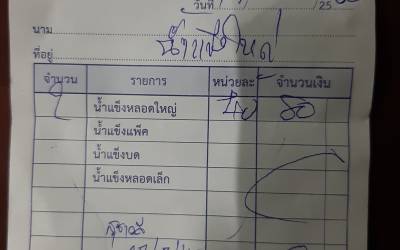 วันที่ 25
นาม
ที่อยู่
จำนวน รายการ หน่วยละ จำนวนเงิน
2 น้ำแข็งหลอดใหญ่ 40 80
น้ำแข็งแพ็ค
น้ำแข็งบด
น้ำแข็งหลอดเล็ก